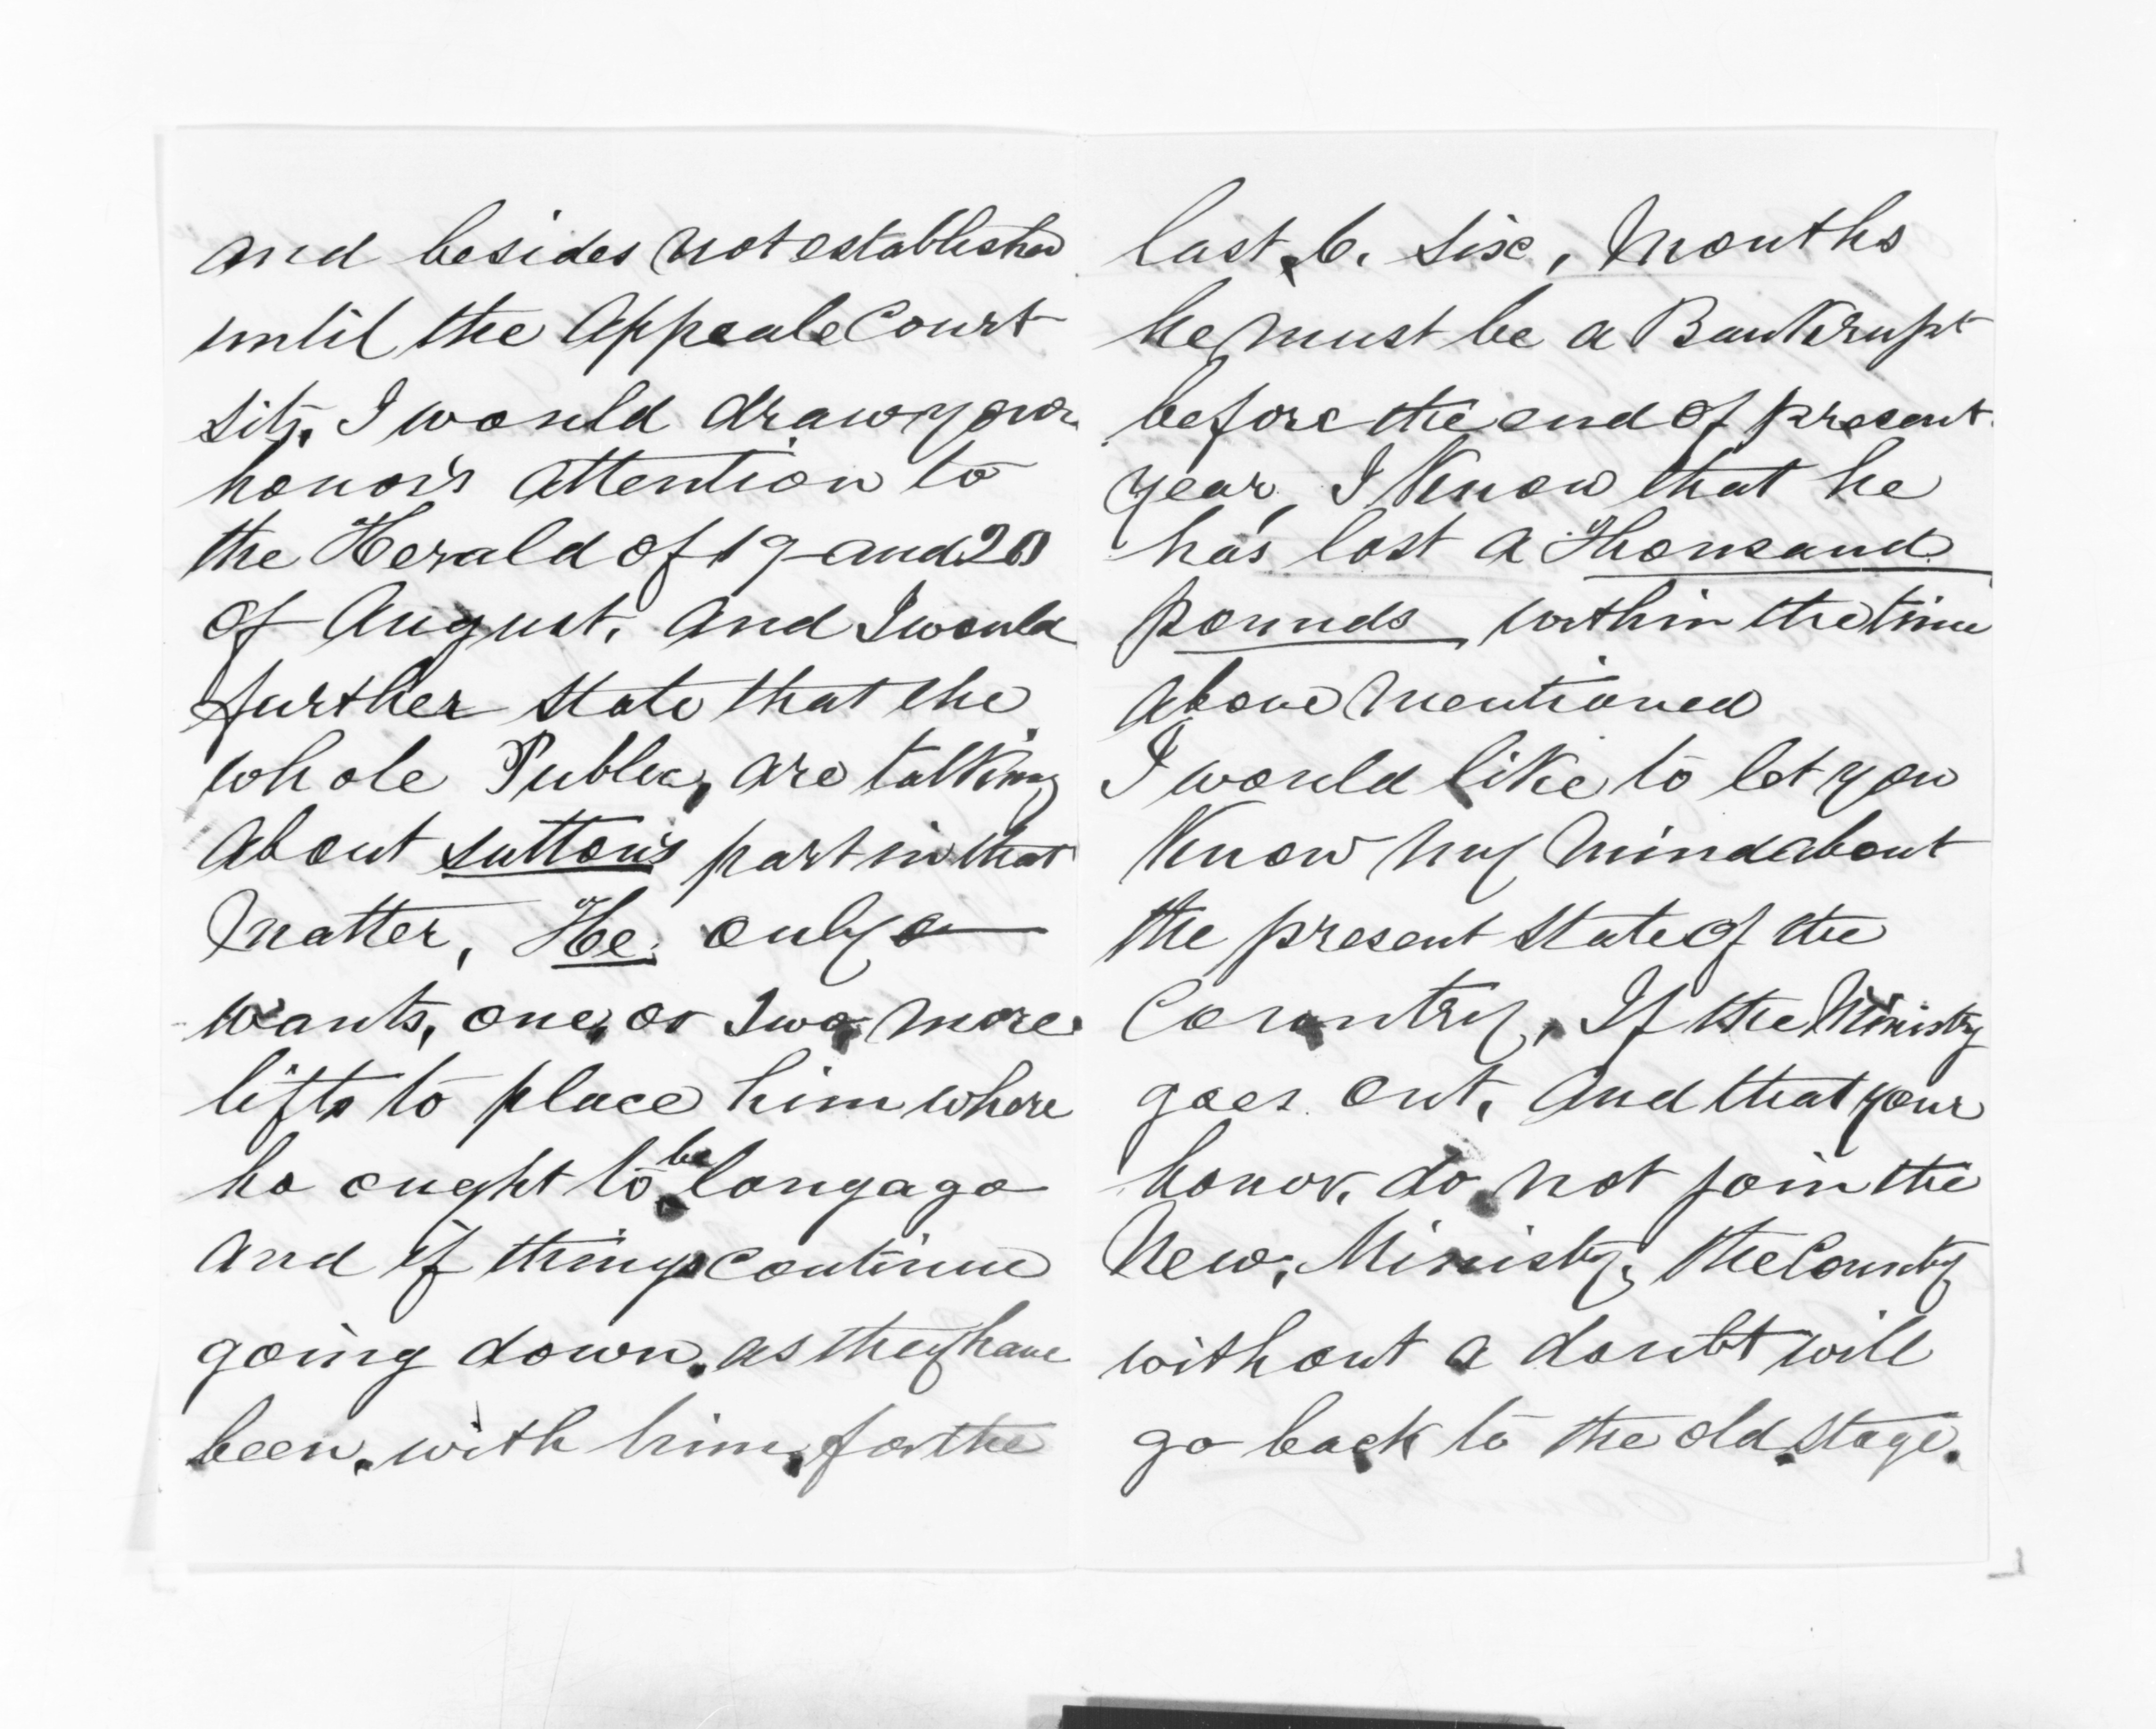 and besides not established
until the Appeale Court
sits, I would draw your
honor's attention to
the Herald of 19 and 20
of August, and I would
further state that the
whole Public, are talking
about Sutton's part in that
Matter, He, only a
wants, one, or two, more
lifts to place him where
he ought to be long ago
and if things continue
going down, as they have
been, with him, for the
last, 6, Six, Months
he must be a Bankrupt
before the end of present
year, I Know that he
has lost a Thousand
pounds within the time
above Mentioned
I would like to let you
Know my Mind about
the present State of the
Country, If the Ministry
goes out, and that your
honor, do not join the
New, Ministry, the Country
without a doubt will
go back to the old stage.